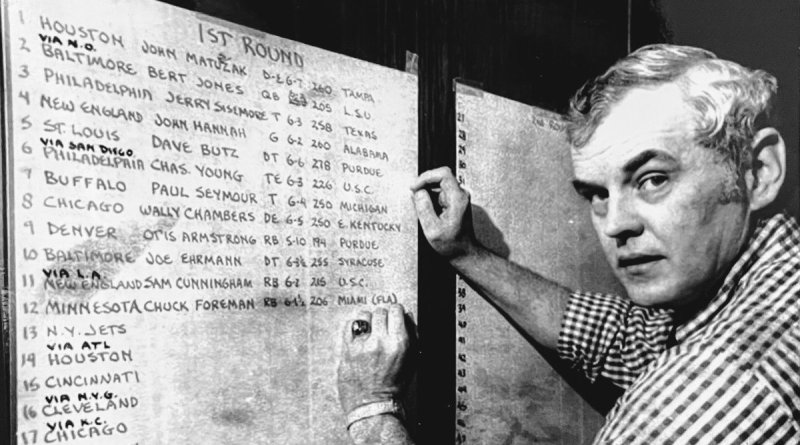 1ST ROUND
1 HOUSTON JOHN MATUZAK D-E 6-7 260 TAMPA
VIA N.O.
2 BALTIMORE BERT JONES QB 205 L.S.U.
3 PHILADELPHIA JERRY SISEMORE T 6-3 258 TEXAS
4 NEW ENGLAND JOHN HANNAH G 6-2 260 ALABAMA
5 ST. LOUIS DAVE BUTZ DT 6-6 278 PURDUE
VIA SAN DIEGO
6 PHILADELPHIA CHAS. YOUNG TE 6-3 226 U.S.C.
7 BUFFALO PAUL SEYMOUR T 6-4 250 MICHIGAN
8 CHICAGO WALLY CHAMBERS DE 6-5 250 E. KENTUCKY
9 DENVER OTIS ARMSTRONG RB 5-10 194 PURDUE
10 BALTIMORE JOE EHRMANN DT 6-3½ 255 SYRACUSE
VIA L.A.
11 NEW ENGLAND SAM CUNNINGHAM RB 6-2 215 U.S.C.
12 MINNESOTA CHUCK FOREMAN RB 6-1½ 206 MIAMI (FLA)
13 N.Y. JETS
VIA ATL
14 HOUSTON
15 CINCINNATI
VIA N.Y.G.
16 CLEVELAND
VIA K.C.
17 CHICAGO
2ND ROUND
27
28
29
30
31